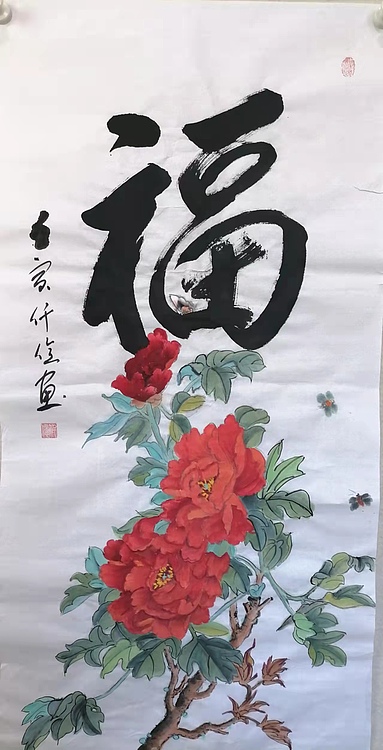 福
壬寅仟画